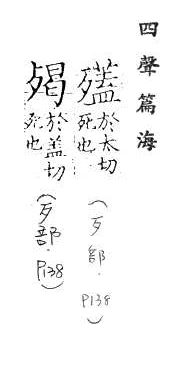 四聲篇海
於太切
死也
（歹部．P138）
於盖切
死也
（歹部．P138）